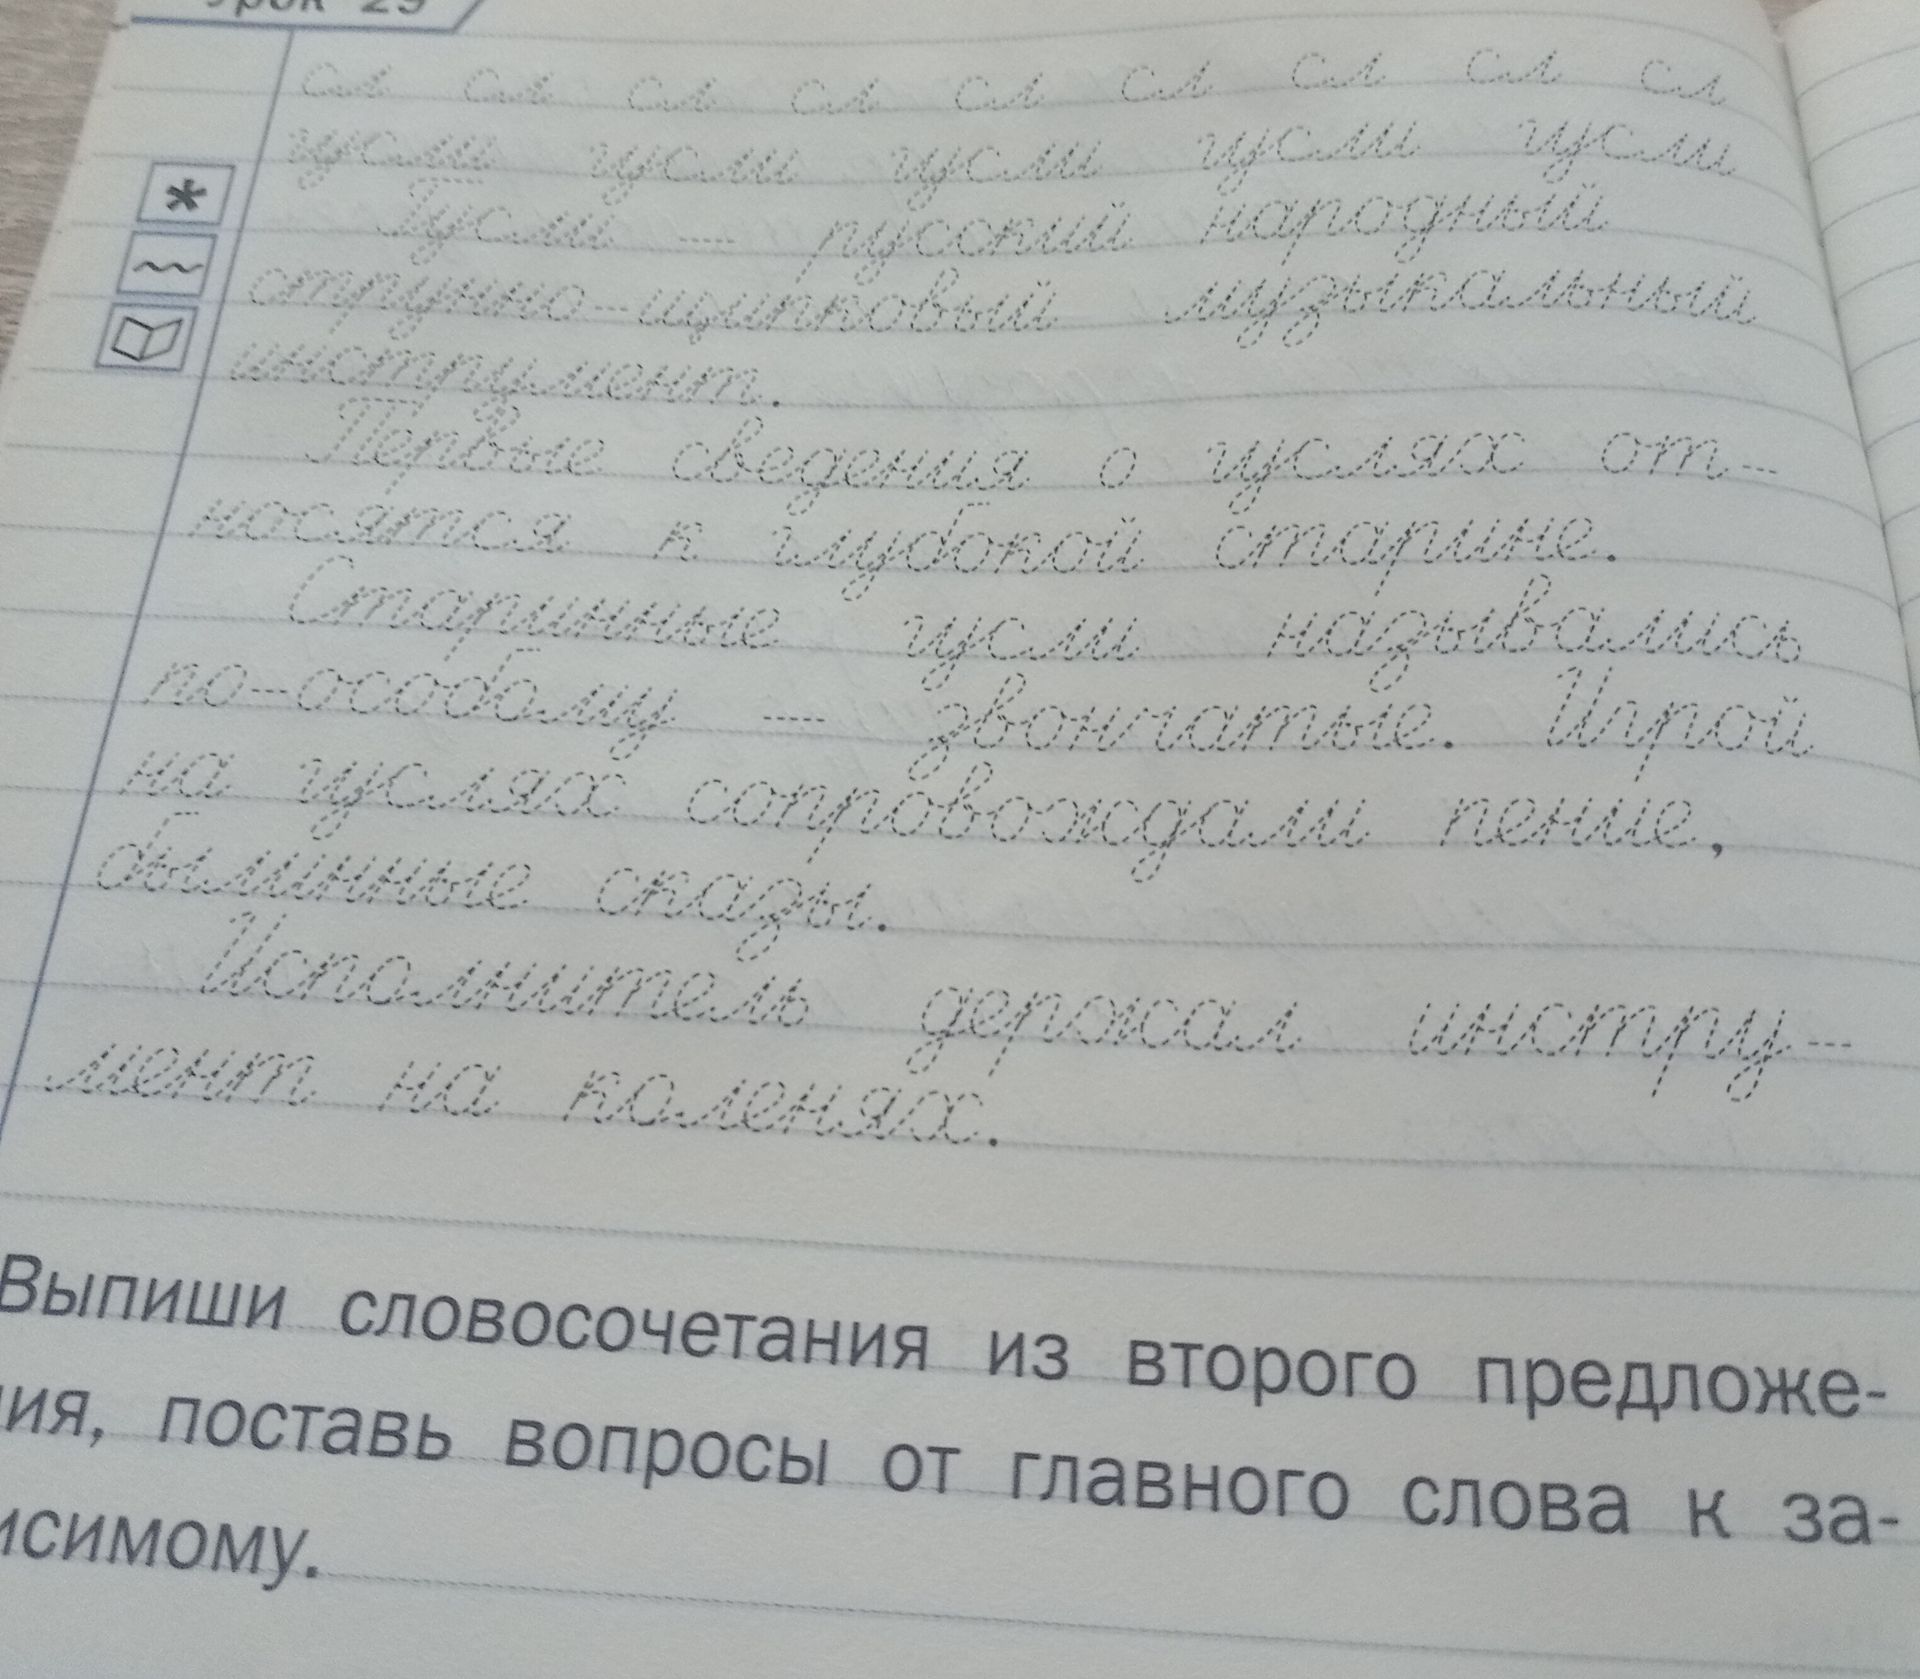 Урок 29
сл сл сл сл сл сл сл сл сл
гусли гусли гусли гусли гусли
Гусли — русский народный
струнно-щипковый музыкальный
инструмент.
Первые сведения о гуслях от-
носятся к глубокой старине.
Старинные гусли назывались
по-особому — звончатые. Игрой
на гуслях сопровождали пение,
былинные сказы.
Исполнитель держал инстру-
мент на коленях.
Выпиши словосочетания из второго предложе-
ния, поставь вопросы от главного слова к за-
висимому.